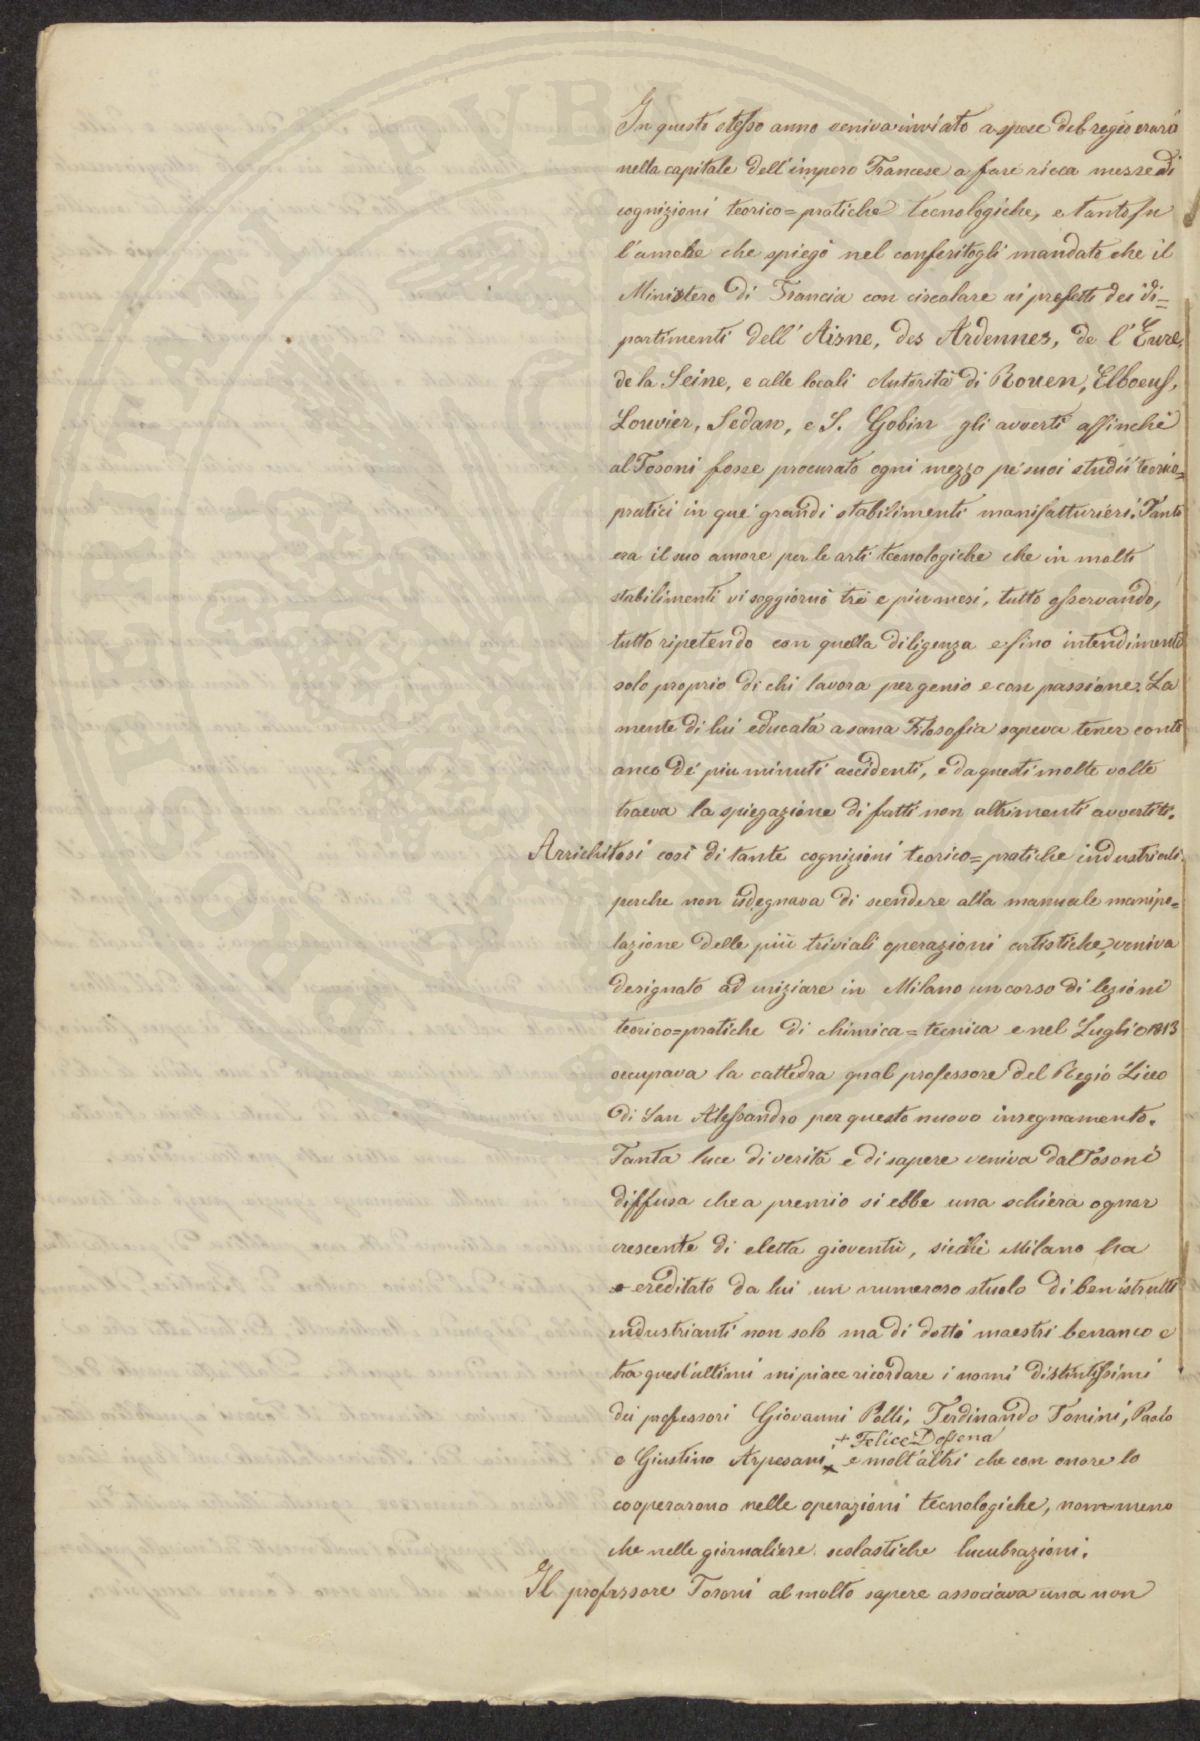 In questo stesso anno veniva inviato a spese del regio erario
nella capitale dell'impero Francese a fare ricca messe di
cognizioni teorico=pratiche tecnologiche, e tanto fu
l'amore che spiegò nel conferitogli mandato che il
Ministero di Francia con circolare ai prefetti dei di=
partimenti dell'Aisne, des Ardennes, de l'Eure,
de la Seine, e alle locali Autorità di Rouen, Elboeuf,
Louvier, Sedan, e S. Gobin gli avvertì affinché
al Tosoni fosse procurato ogni mezzo pe' suoi studii teorico=
pratici in que' grandi stabilimenti manifatturieri. Tanto
era il suo amore per le arti tecnologiche che in molti
stabilimenti vi soggiornò tre e piu mesi, tutto osservando,
tutto ripetendo con quella diligenza e fino intendimento
solo proprio di chi lavora per genio e con passione. La
mente di lui educata a sana Filosofia sapeva tener conto
anco de' piu minuti accidenti, e da questi molte volte
traeva la spiegazione di fatti non altrimenti avvertiti.
Arrichitosi così di tante cognizioni teorico=pratiche industriali
perche non isdegnava di scendere alla manuale manipo=
lazione delle più triviali operazioni artistiche, veniva
designato ad iniziare in Milano un corso di lezioni
teorico=pratiche di chimica=tecnica e nel Luglio 1813
occupava la cattedra qual professore del Regio Liceo
di San Alessandro per questo nuovo insegnamento.
Tanta luce di verità e di sapere veniva dal Tosoni
diffusa che a premio si ebbe una schiera ognor
crescente di eletta gioventù, sicchè Milano ha
ereditato da lui un numeroso stuolo di ben istrutti
industrianti non solo ma di dotti maestri benanco e
tra quest'ultimi mi piace ricordare i nomi distintissimi
dei professori Giovanni Polli, Ferdinando Tonini, Paolo
+ Felice Dossena
e Giustino Arpesani, + e molt'altri che con onore lo
cooperarono nelle operazioni tecnologiche, non meno
che nelle giornaliere scolastiche lucubrazioni.
Il professore Tosoni al molto sapere associava una non